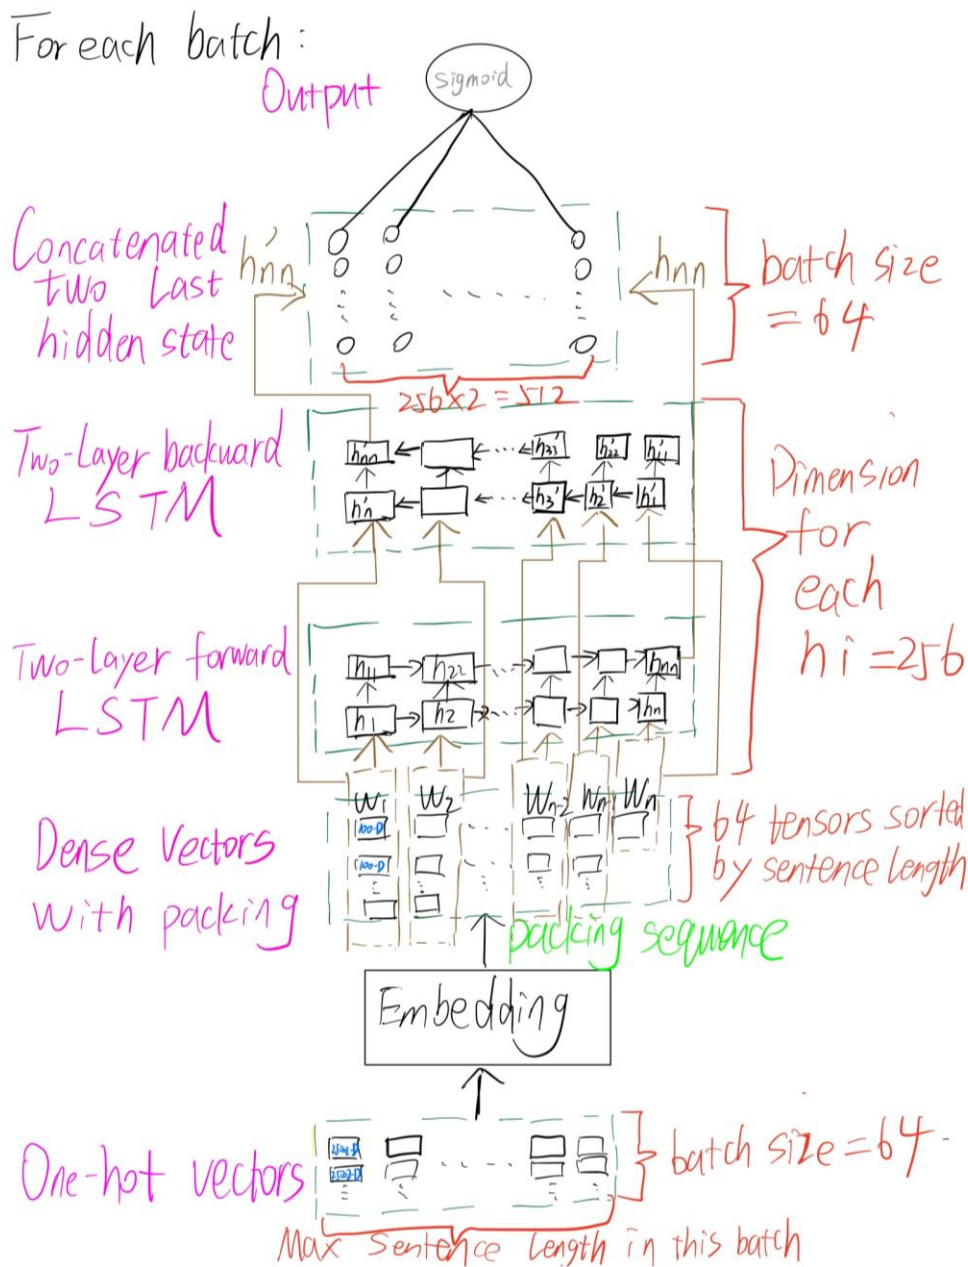 For each batch :
Output
sigmoid
Concatenated
two Last
hidden state
h'nn
hnn
batch size
= 64
256×2 = 512
Two-Layer backward
LSTM
h'nn
h'33
h'22
h'11
h'n
h3'
h2'
h'1
Dimension
for
each
hi = 256
Two-Layer forward
LSTM
h11
h22
hnn
h1
h2
hn
W1
W2
Wn-2
Wn
Wn
Dense Vectors
with packing
100-D
100-D
64 tensors sorted
by sentence length
packing sequence
Embedding
One-hot vectors
25002-D
batch size = 64
Max Sentence Length in this batch